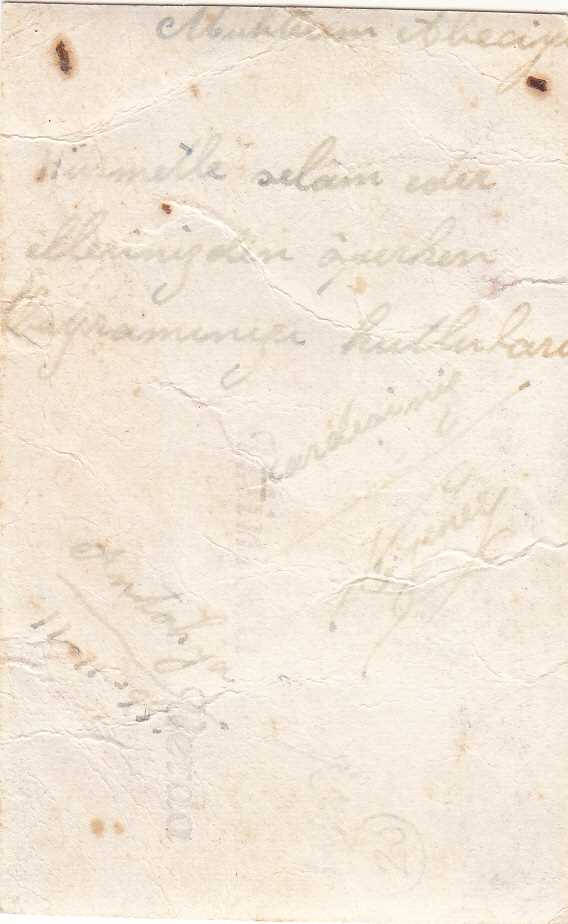 Muhterem Abeciğim
Hürmetle selâm eder
ellerinizden öperken
Bayramınızı kutlularım
Kardeşiniz
Antakya
20